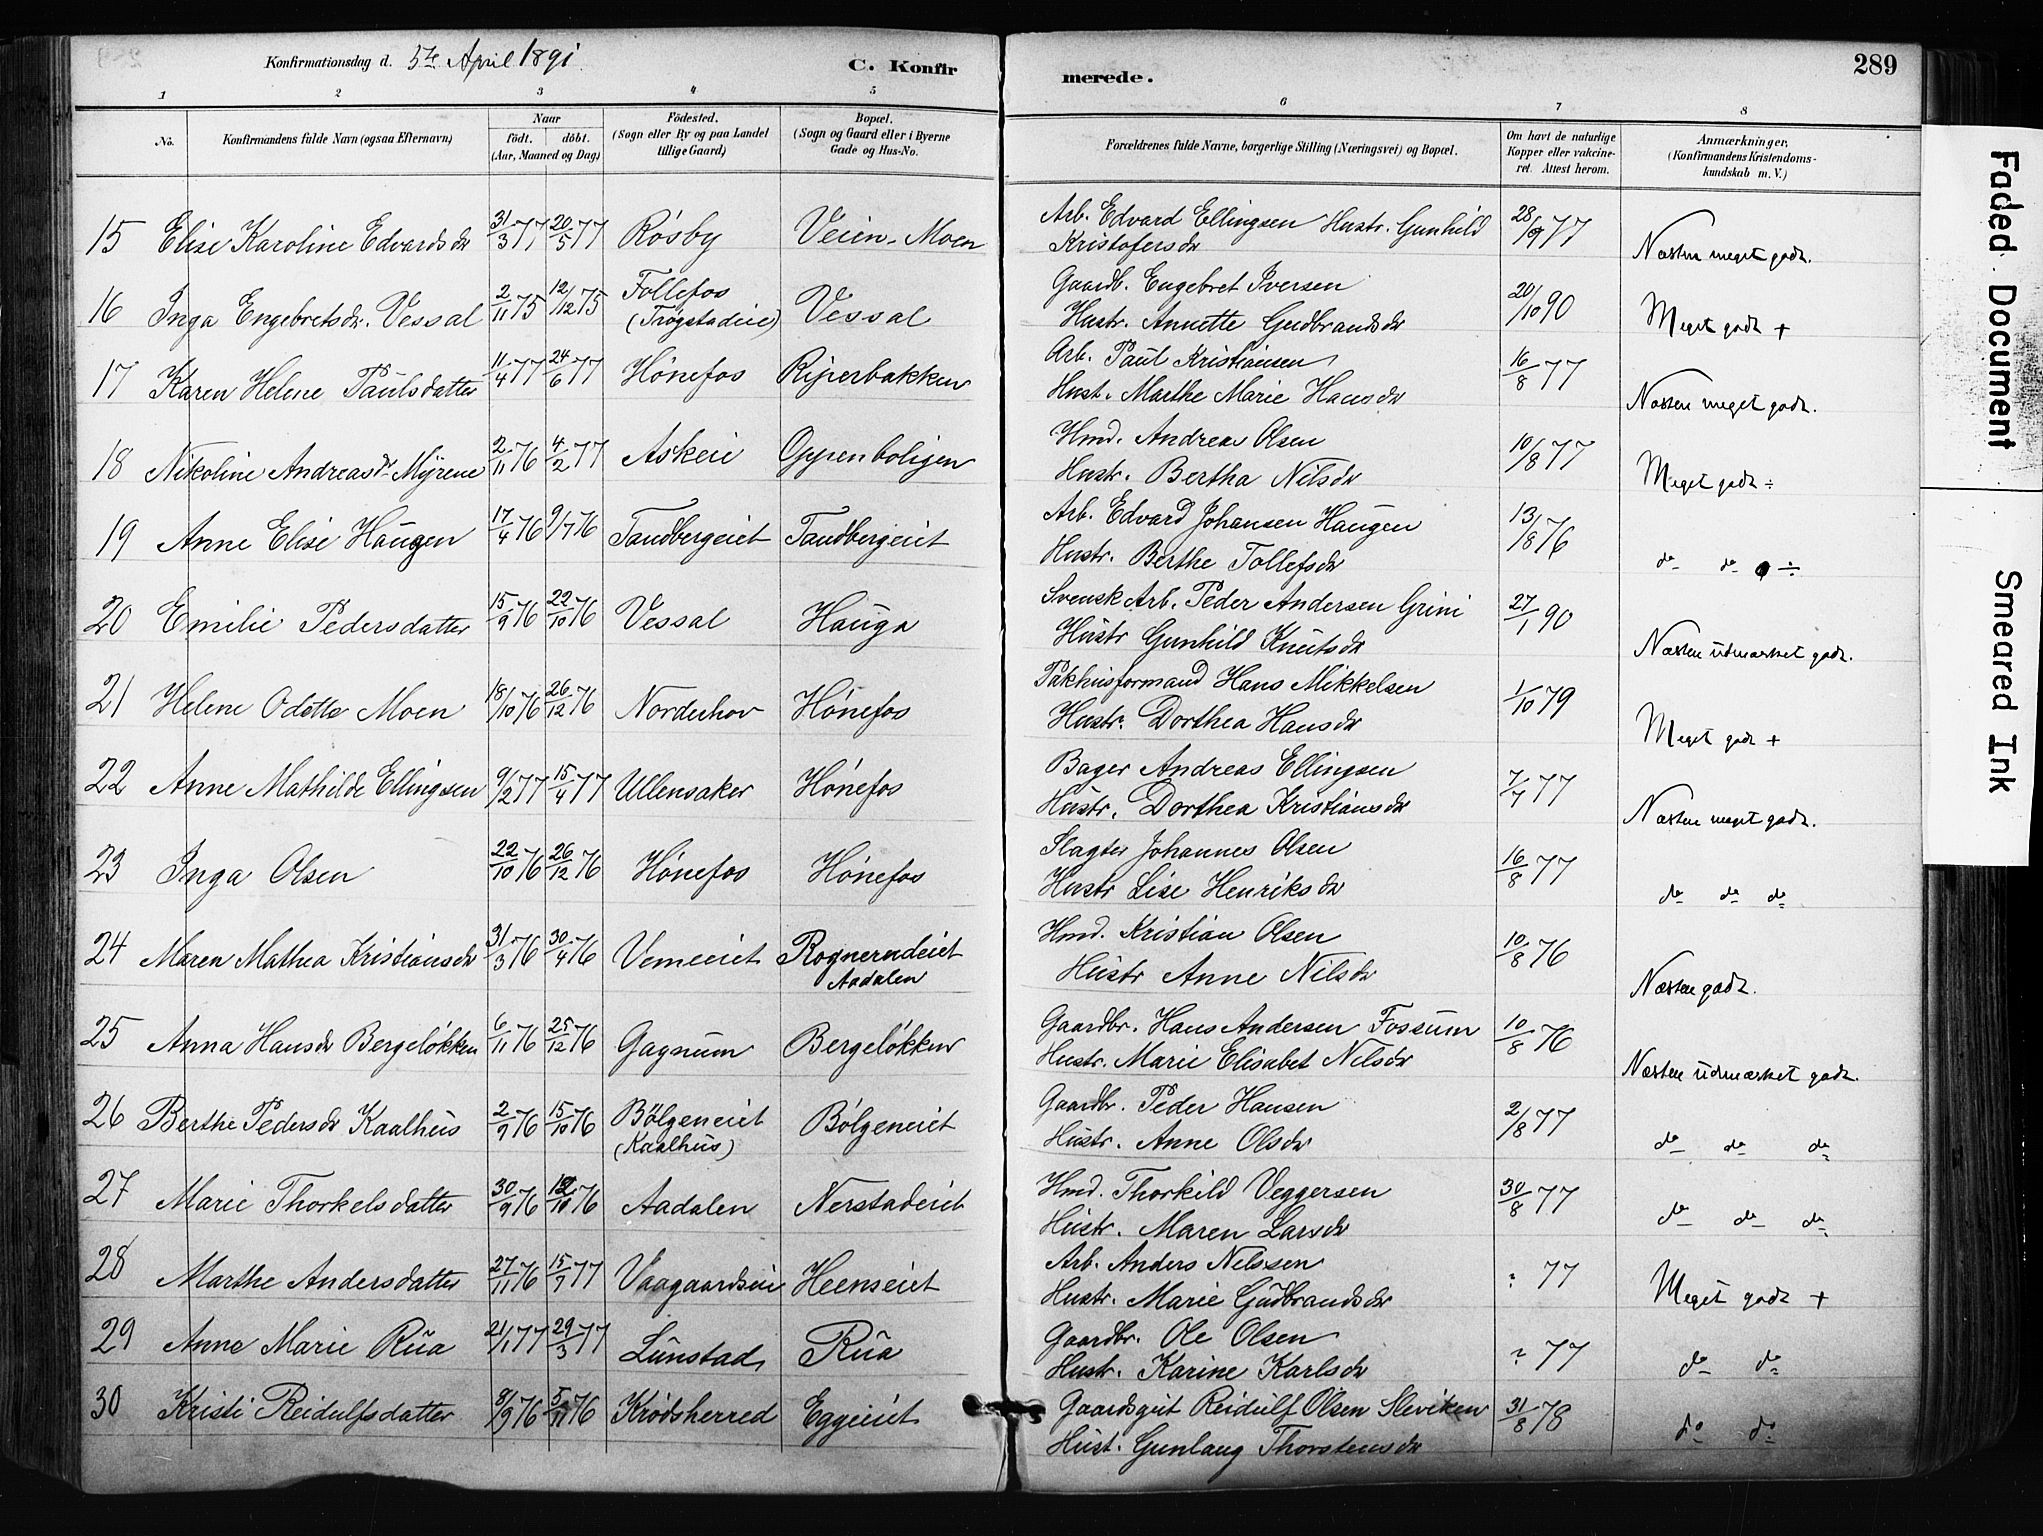 Konfirmationsdag d. 5te April 1891.
C. Konfirmerede.
289
1 2 3 4 5 6 7 8
No.
Konfirmandens fulde Navn (ogsaa Efternavn)
Naar
født. døbt.
(Aar, Maaned og Dag)
Fødested.
(Sogn eller By og paa Landet
tillige Gaard)
Bopæl.
(Sogn og Gaard eller i Byerne
Gade og Hus-No.
Forældrenes fulde Navne, borgerlige Stilling (Næringsvei) og Bopæl.
Om havt de naturlige
Kopper eller vakcine-
ret. Attest herom.
Anmærkninger.
(Konfirmandens Kristendoms-
kundskab m. V.)
15 Elise Karoline Edvardsdr 31/3 77 20/5 77 Røsby Veien-Moen Arb. Edvard Ellingsen Hustr. Gunhild
Kristofersdr 28/9 77 Næsten meget godt.
16 Inga Engebretsdr. Vessal 2/11 75 12/12 75 Follefos
(Trøgstadeie) Vessal Gaardb. Engebret Iversen
Hustr. Annette Gudbrandsdr 20/10 90 Meget godt +
17 Karen Helene Paulsdatter 11/4 77 24/6 77 Hønefos Riperbakken Arb. Paul Kristiansen
Hust. Marthe Marie Hansdr 16/8 77 Næsten meget godt.
18 Nikoline Andreasdr Myrene 2/11 76 4/2 77 Askeie Oppenboligen Hmd. Andreas Olsen
Hustr. Bertha Nilsdr 10/8 77 Meget godt ÷
19 Anne Elise Haugen 17/4 76 9/7 76 Tandbergeiet Tandbergeiet Arb. Edvard Johansen Haugen
Hustr. Berthe Tollefsdr 13/8 76 do do ÷
20 Emilie Pedersdatter 15/9 76 22/10 76 Vessal Hauga Svensk Arb. Peder Andersen Grini
Hustr Gunhild Knutsdr 27/1 90 Næsten udmærket godt.
21 Helene Odette Moen 18/10 76 26/12 76 Norderhov Hønefos Pakhusformand Hans Mikkelsen
Hustr. Dorthea Hansdr 1/10 79 Meget godt +
22 Anne Mathilde Ellingsen 9/2 77 15/4 77 Ullensaker Hønefos Bager Andreas Ellingsen
Hustr. Dorthea Kristiansdr 7/7 77 Næsten meget godt.
23 Inga Olsen 22/10 76 26/12 76 Hønefos Hønefos Slagter Johannes Olsen
Hustr Lise Henriksdr 16/8 77 do do do
24 Maren Mathea Kristiansdr 31/3 76 30/4 76 Vemeeiet Rognerudeiet
Aadalen Hmd. Kristian Olsen
Hustr Anne Nilsdr 10/8 76 Næsten godt.
25 Anna Hansdr Bergeløkken 6/11 76 25/12 76 Gagnum Bergeløkken Gaardbr. Hans Andersen Fossum
Hustr. Marie Elisabet Nilsdr 10/8 76 Næsten udmærket godt.
26 Berthe Pedersdr Kaalhus 2/9 76 15/10 76 Bølgeneiet
(Kaalhus) Bølgeneiet Gaardbr. Peder Hansen
Hustr. Anne Olsdr 2/8 77 do do do
27 Marie Thorkelsdatter 30/9 76 76 Aadalen Nerstadeiet Hmd. Thorkild Veggersen
Hustr. Maren Larsdr 30/8 77 do do do
28 Marthe Andersdatter 27/11 76 15/7 77 Vaagaardseie Heenseiet Arb. Anders Nelssen
Hustr. Marie Gudbrandsdr ? 77 Meget godt +
29 Anne Marie Rua 21/1 77 29/3 77 Lunstad Rua Gaardbr. Ole Olsen
Hustr. Karine Karlsdr ? 77 do do
30 Kristi Reidulfsdatter 8/9 76 5/11 76 Krødsherred Eggeeiet Gaardsgut Reidulf Olsen Sleviken
Hust. Gunlaug Thorstensdr 31/8 78 do do
Faded Document
Smeared Ink